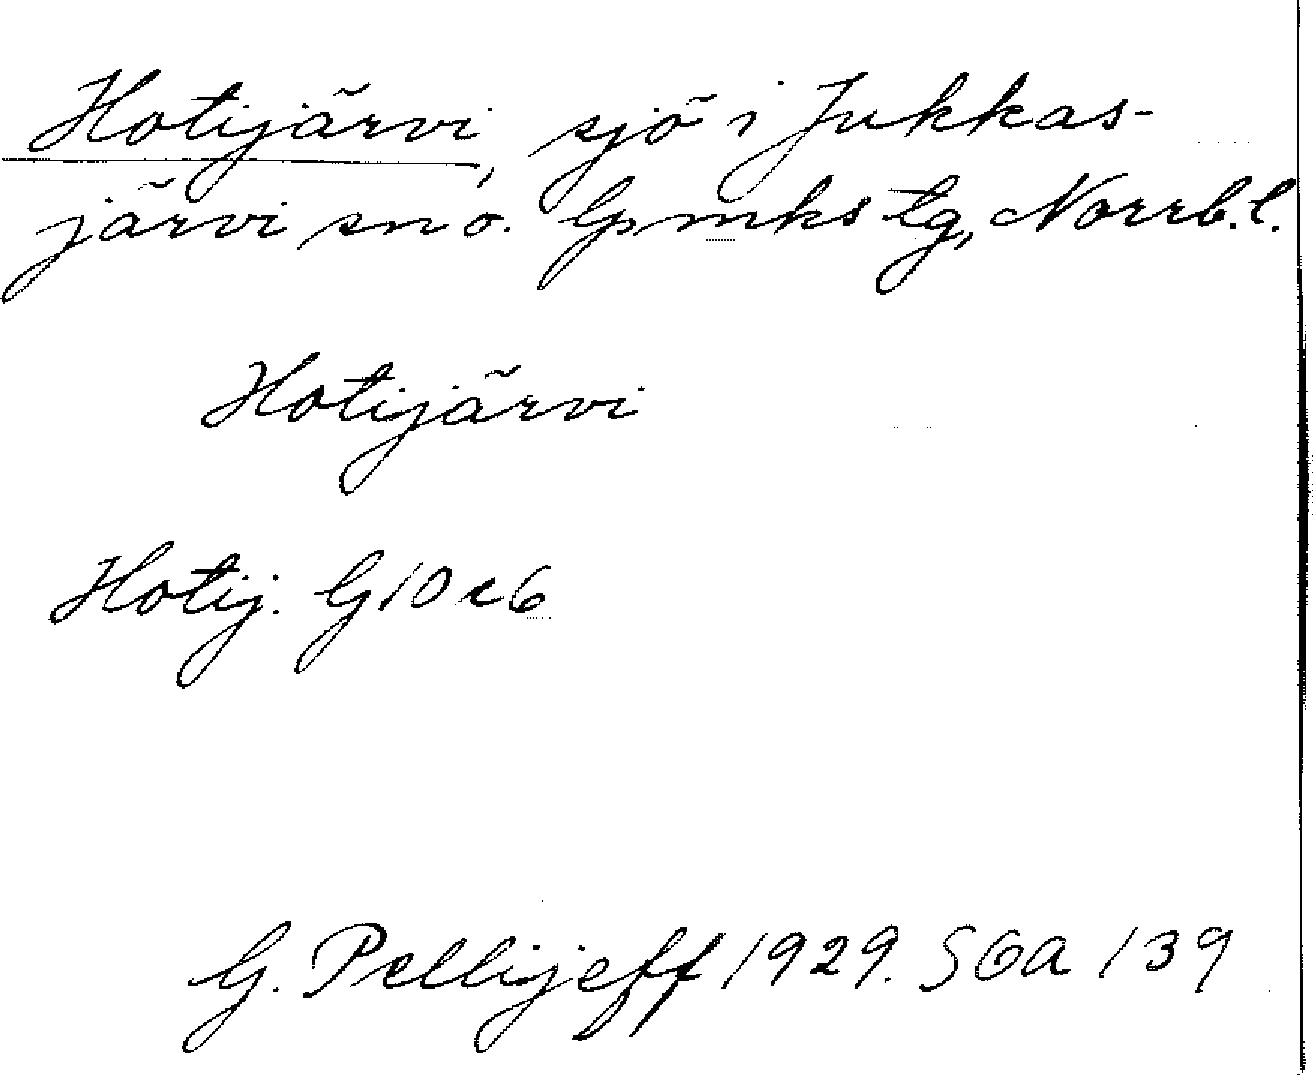 Hotijärvi, sjö i Jukkas-
järvi sn o. Gs mks tg, Norrb. l.
Hotijärvi
Hotij. G 10 c 6
G. Pellijeff 1929. SOA 139